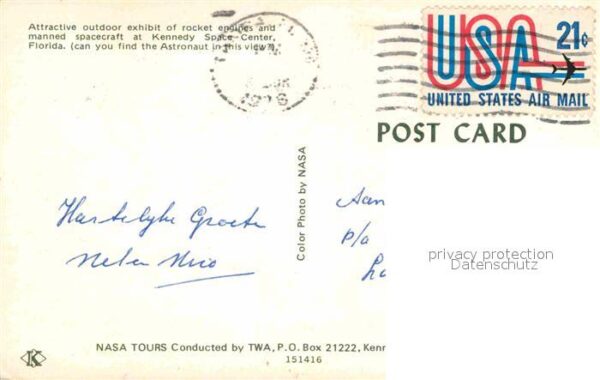 Attractive outdoor exhibit of rocket engines and
manned spacecraft at Kennedy Space Center,
Florida. (can you find the Astronaut in this view?).
USA 21¢
UNITED STATES AIR MAIL
POST CARD
Color Photo by NASA
Hartelyke Groeten
Nico
Aan
p/a
privacy protection
Datenschutz
K
NASA TOURS Conducted by TWA, P.O. Box 21222, Kenn
151416